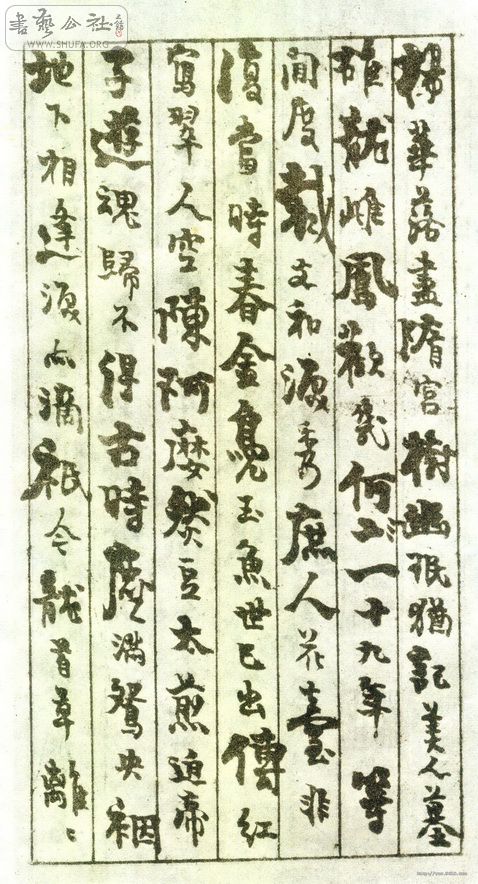 楊華落盡隋宮樹幽珉猶記美人墓
雄龍雌鳳歡幾何一十九年等
閒度文和淚秀庶人花臺非
復當時春金鳧玉魚世已出傳紅
寫翠人空陳阿然豆太煎迫帝
子遊魂歸不得古時滿鴛央裀
地下相逢淚亦滴秖今龍首草離〻
書藝公社
WWW.SHUFA.ORG